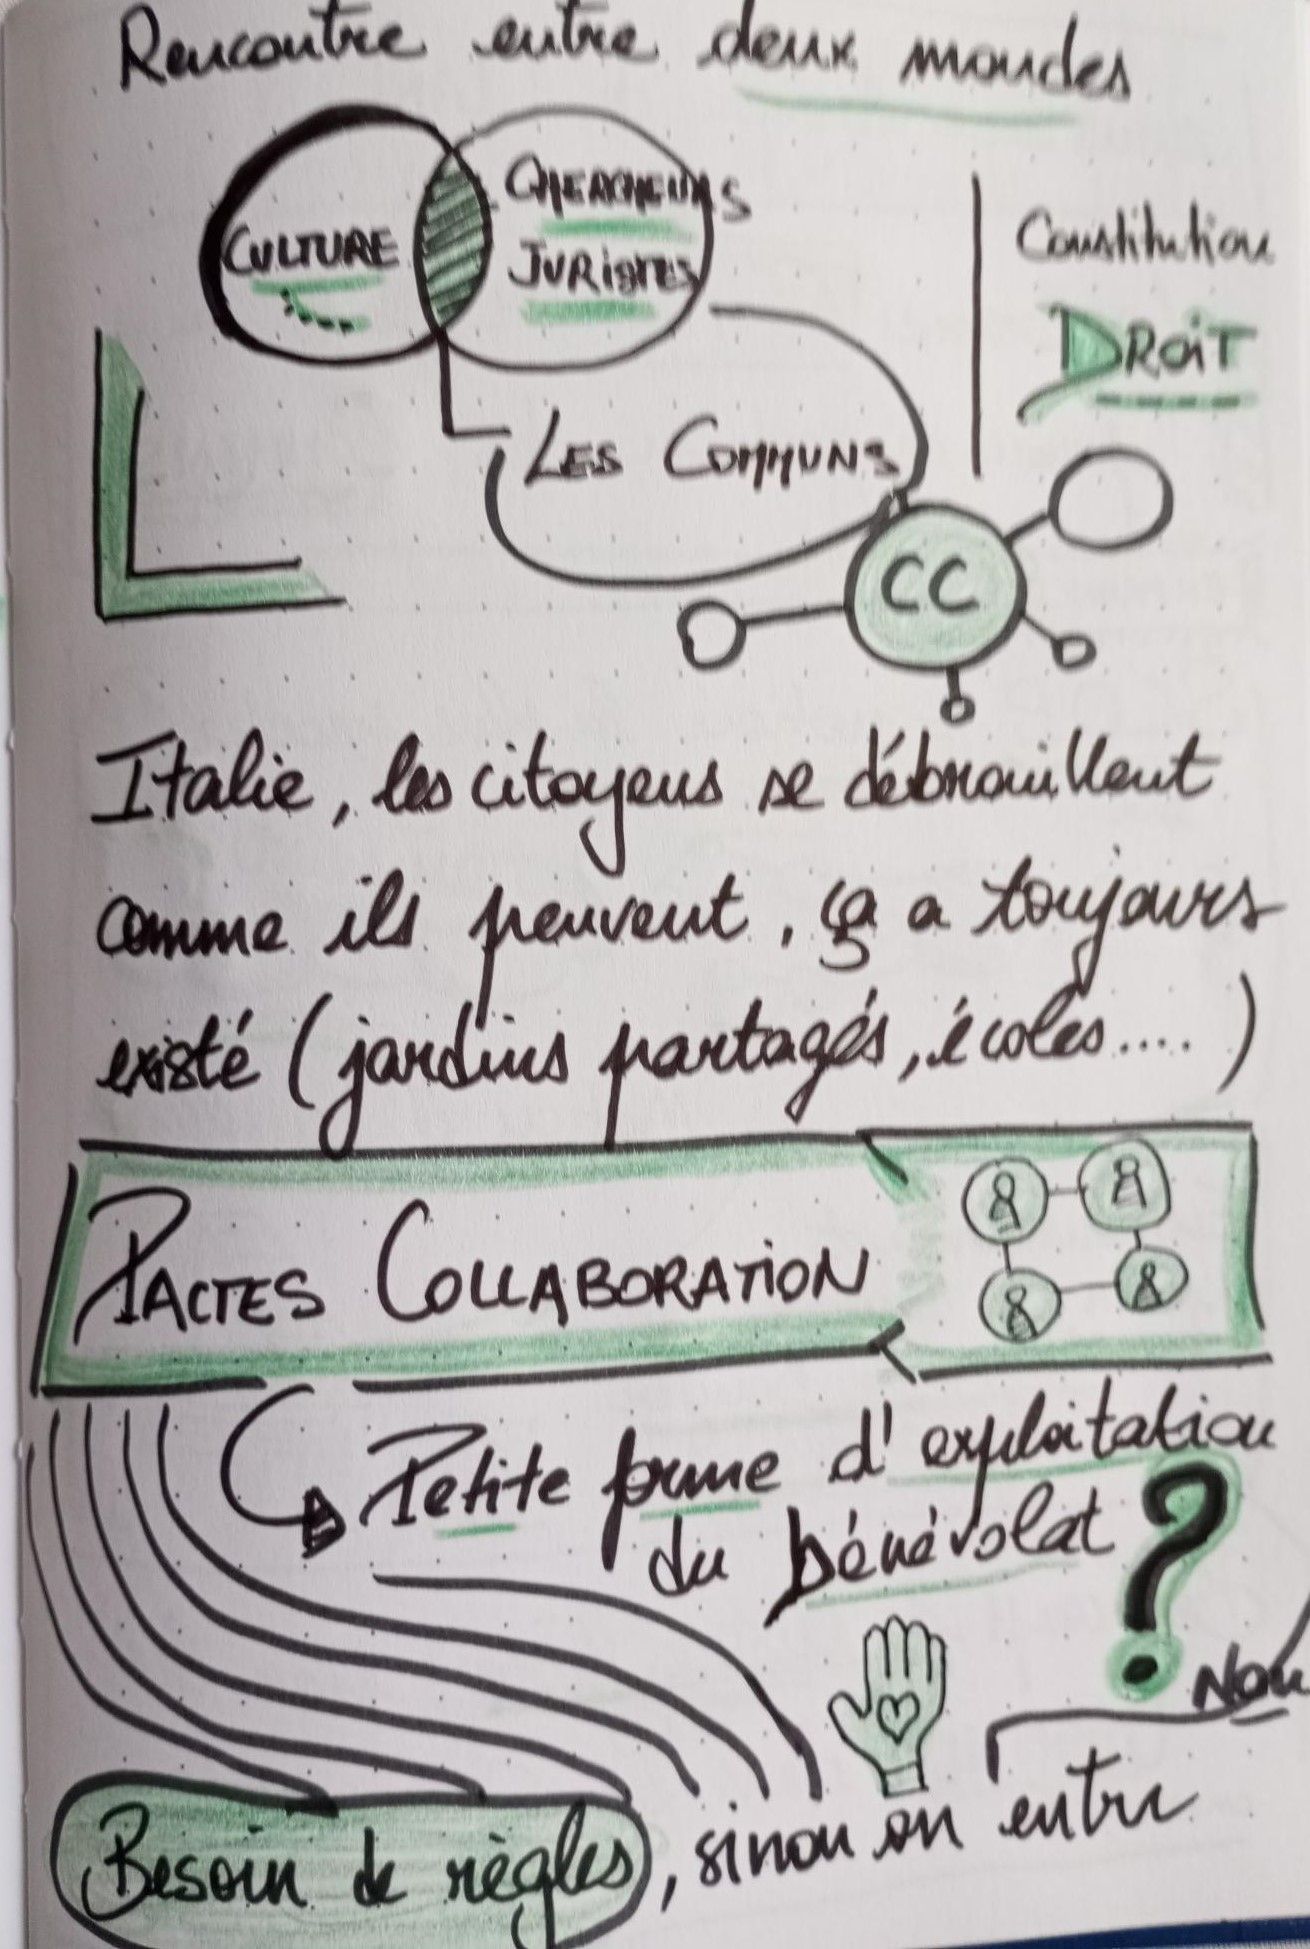 Rencontre entre deux mondes
CULTURE
CHERCHEURS
JURISTES
Constitution
DROIT
LES COMMUNS
CC
Italie, les citoyens se débrouillent
comme ils peuvent, ça a toujours
existé (jardins partagés, écoles....)
PACTES COLLABORATION
Petite forme d'exploitation
du bénévolat ?
Non
Besoin de règles, sinon on entre